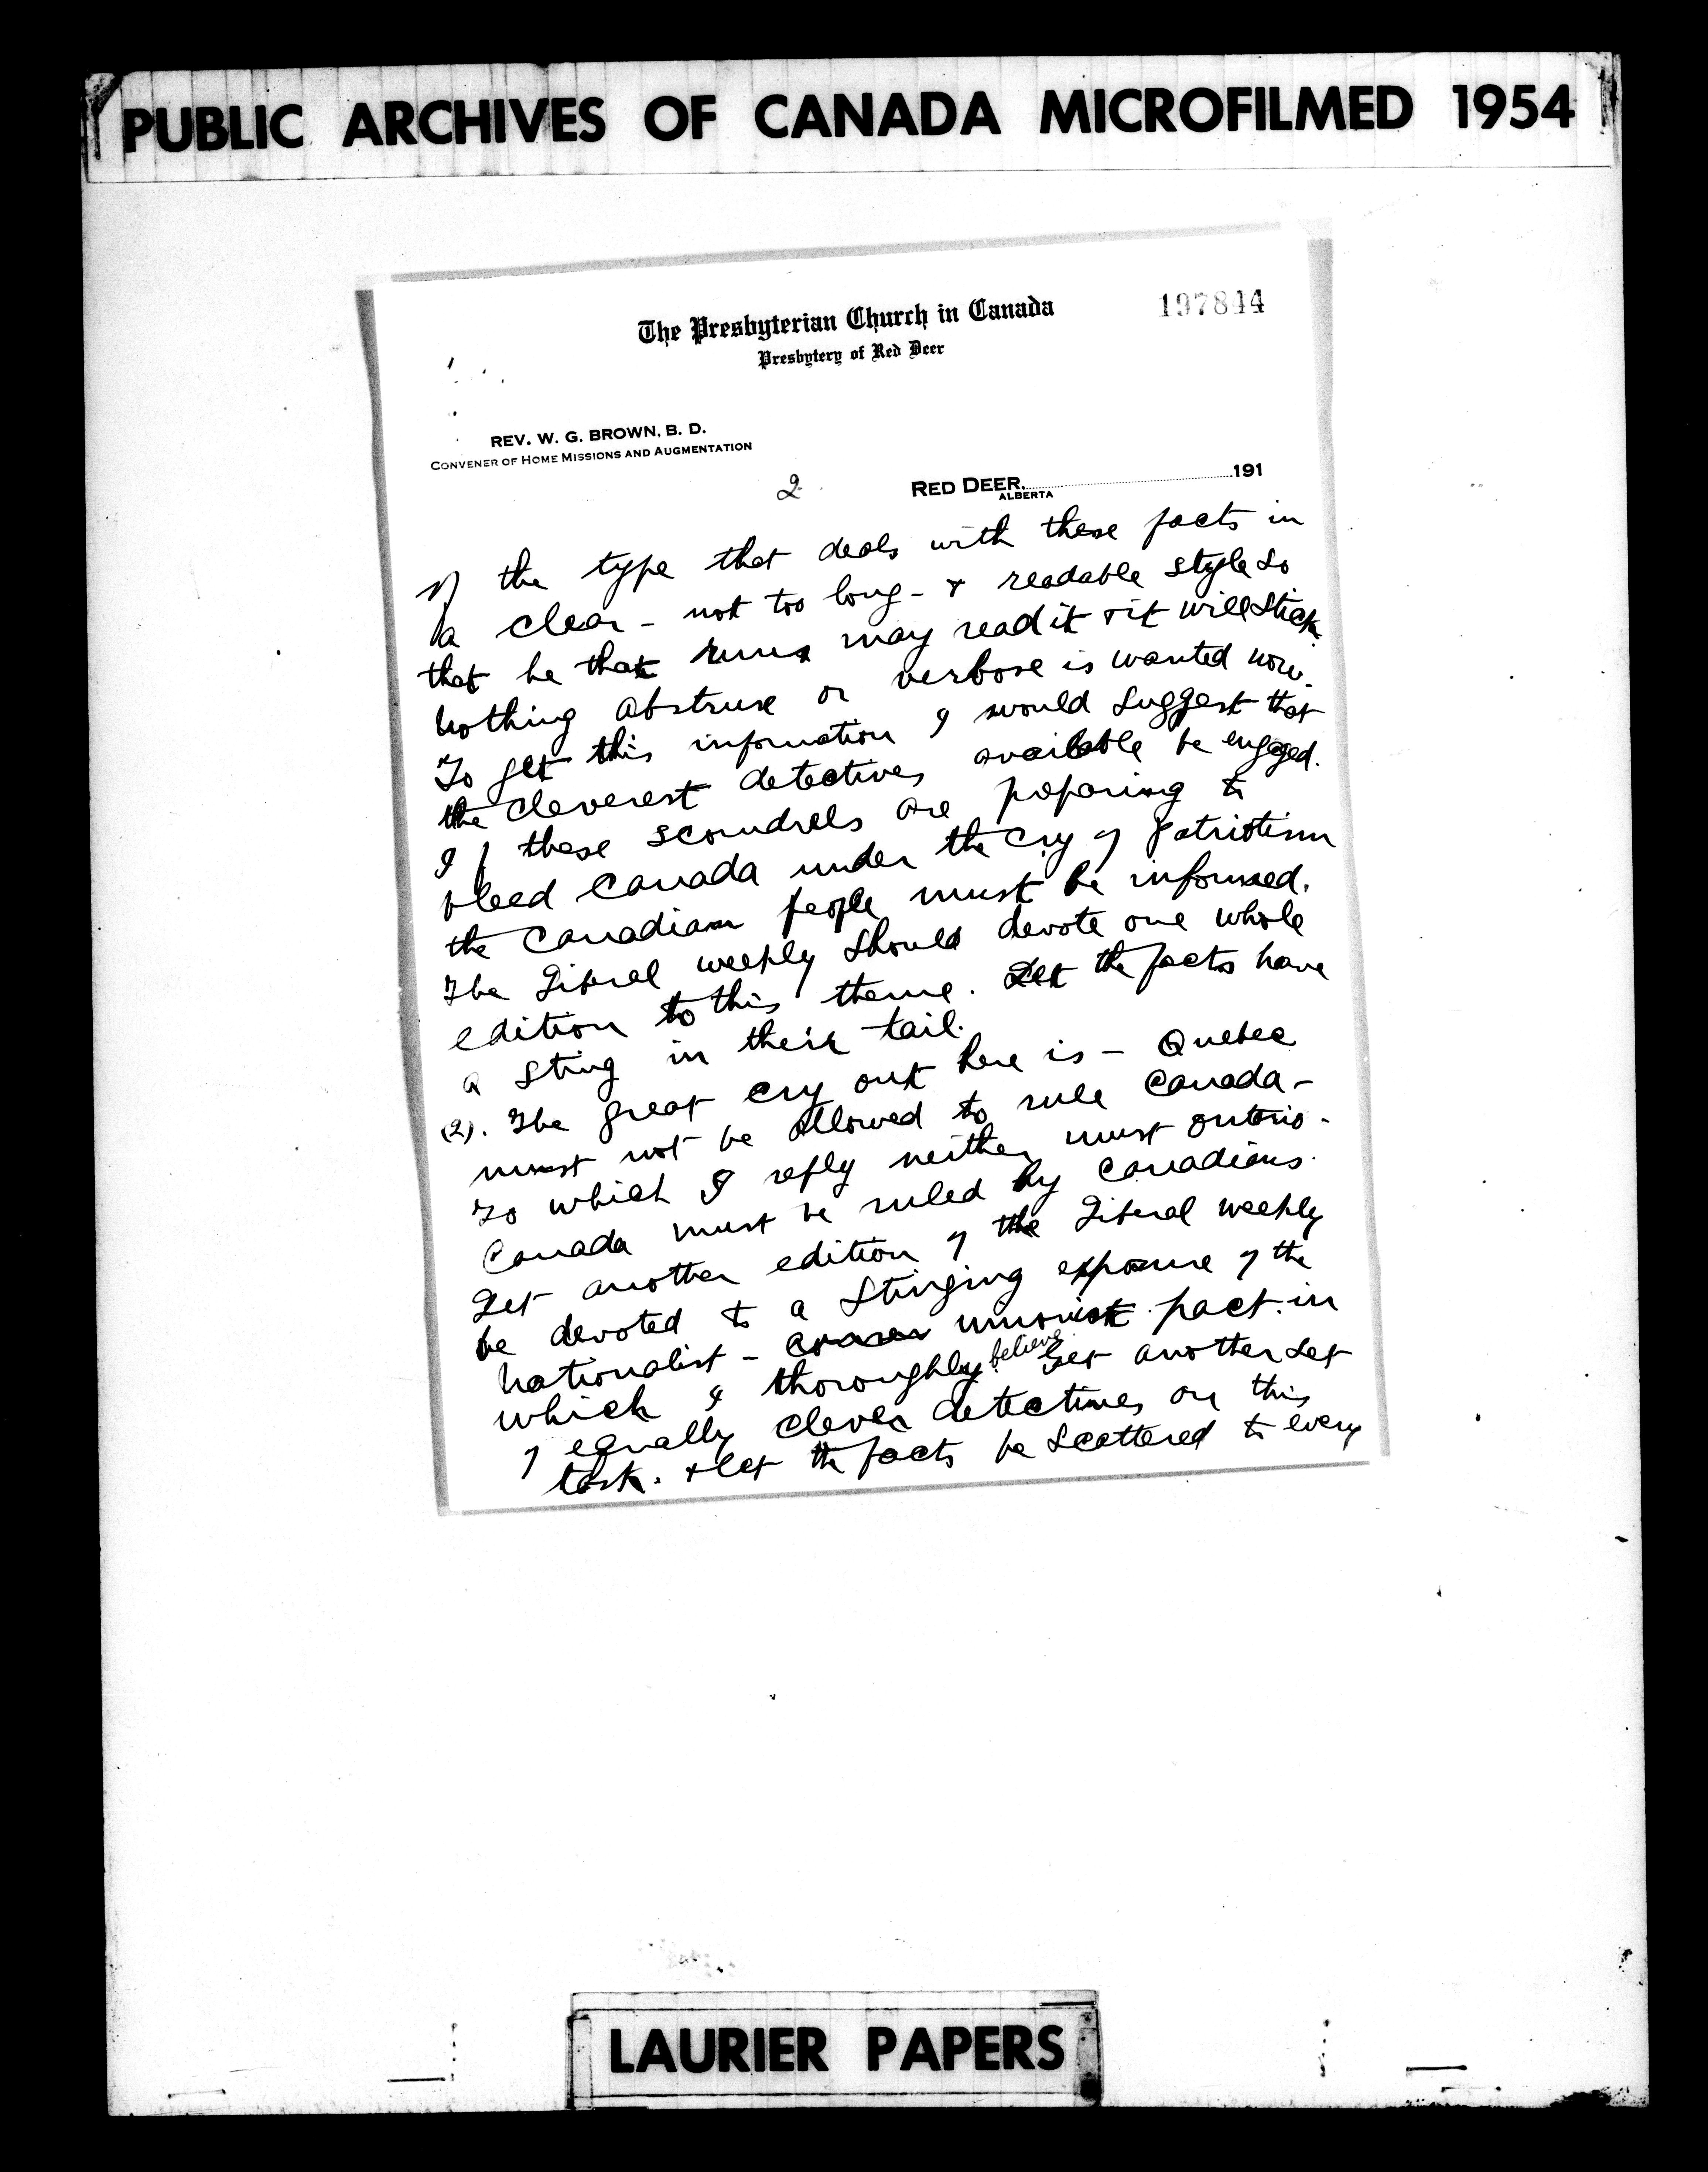 PUBLIC ARCHIVES OF CANADA MICROFILMED 1954
The Presbyterian Church in Canada
197844
Presbytery of Red Deer
REV. W. G. BROWN, B. D.
CONVENER OF HOME MISSIONS AND AUGMENTATION
2
RED DEER, 191
ALBERTA
of the type that deals with these facts in
a clear - not too long - & readable style so
that he that runs may read it & it will stick
Nothing abstruse or verbose is wanted now.
To get this information I would suggest that
the cleverest detectives available be engaged.
If these scoundrels are preparing to
bleed Canada under the cry of patriotism
the Canadian people must be informed.
The Liberal weekly should devote one whole
edition to this theme. Let the facts have
a sting in their tail.
(2). The great cry out here is - Quebec
must not be allowed to rule Canada -
to which I reply neither must Ontario -
Canada must be ruled by Canadians.
Let another edition of the Liberal weekly
be devoted to a stinging exposure of the
Nationalist - unionist pact in
which I thoroughly believe. Get another set
of equally clever detectives on this
task. & let the facts be scattered to every
LAURIER PAPERS